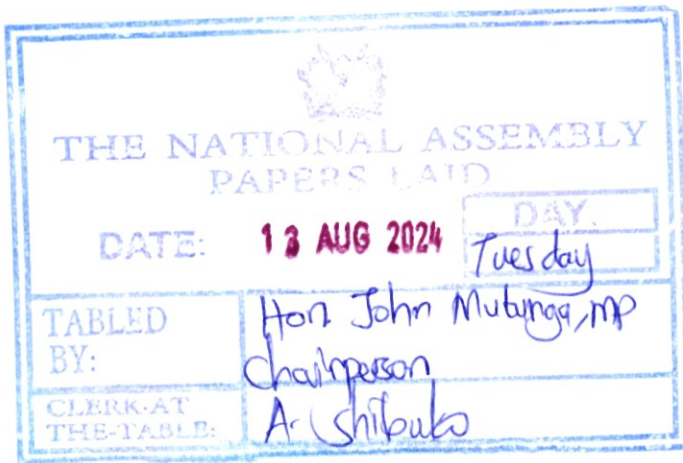 THE NATIONAL ASSEMBLY
PAPERS LAID
DATE: 13 AUG 2024 DAY.
Tuesday
TABLED BY: Hon John Mutunga, MP
Chairperson
CLERK-AT THE-TABLE: A. Shibuko